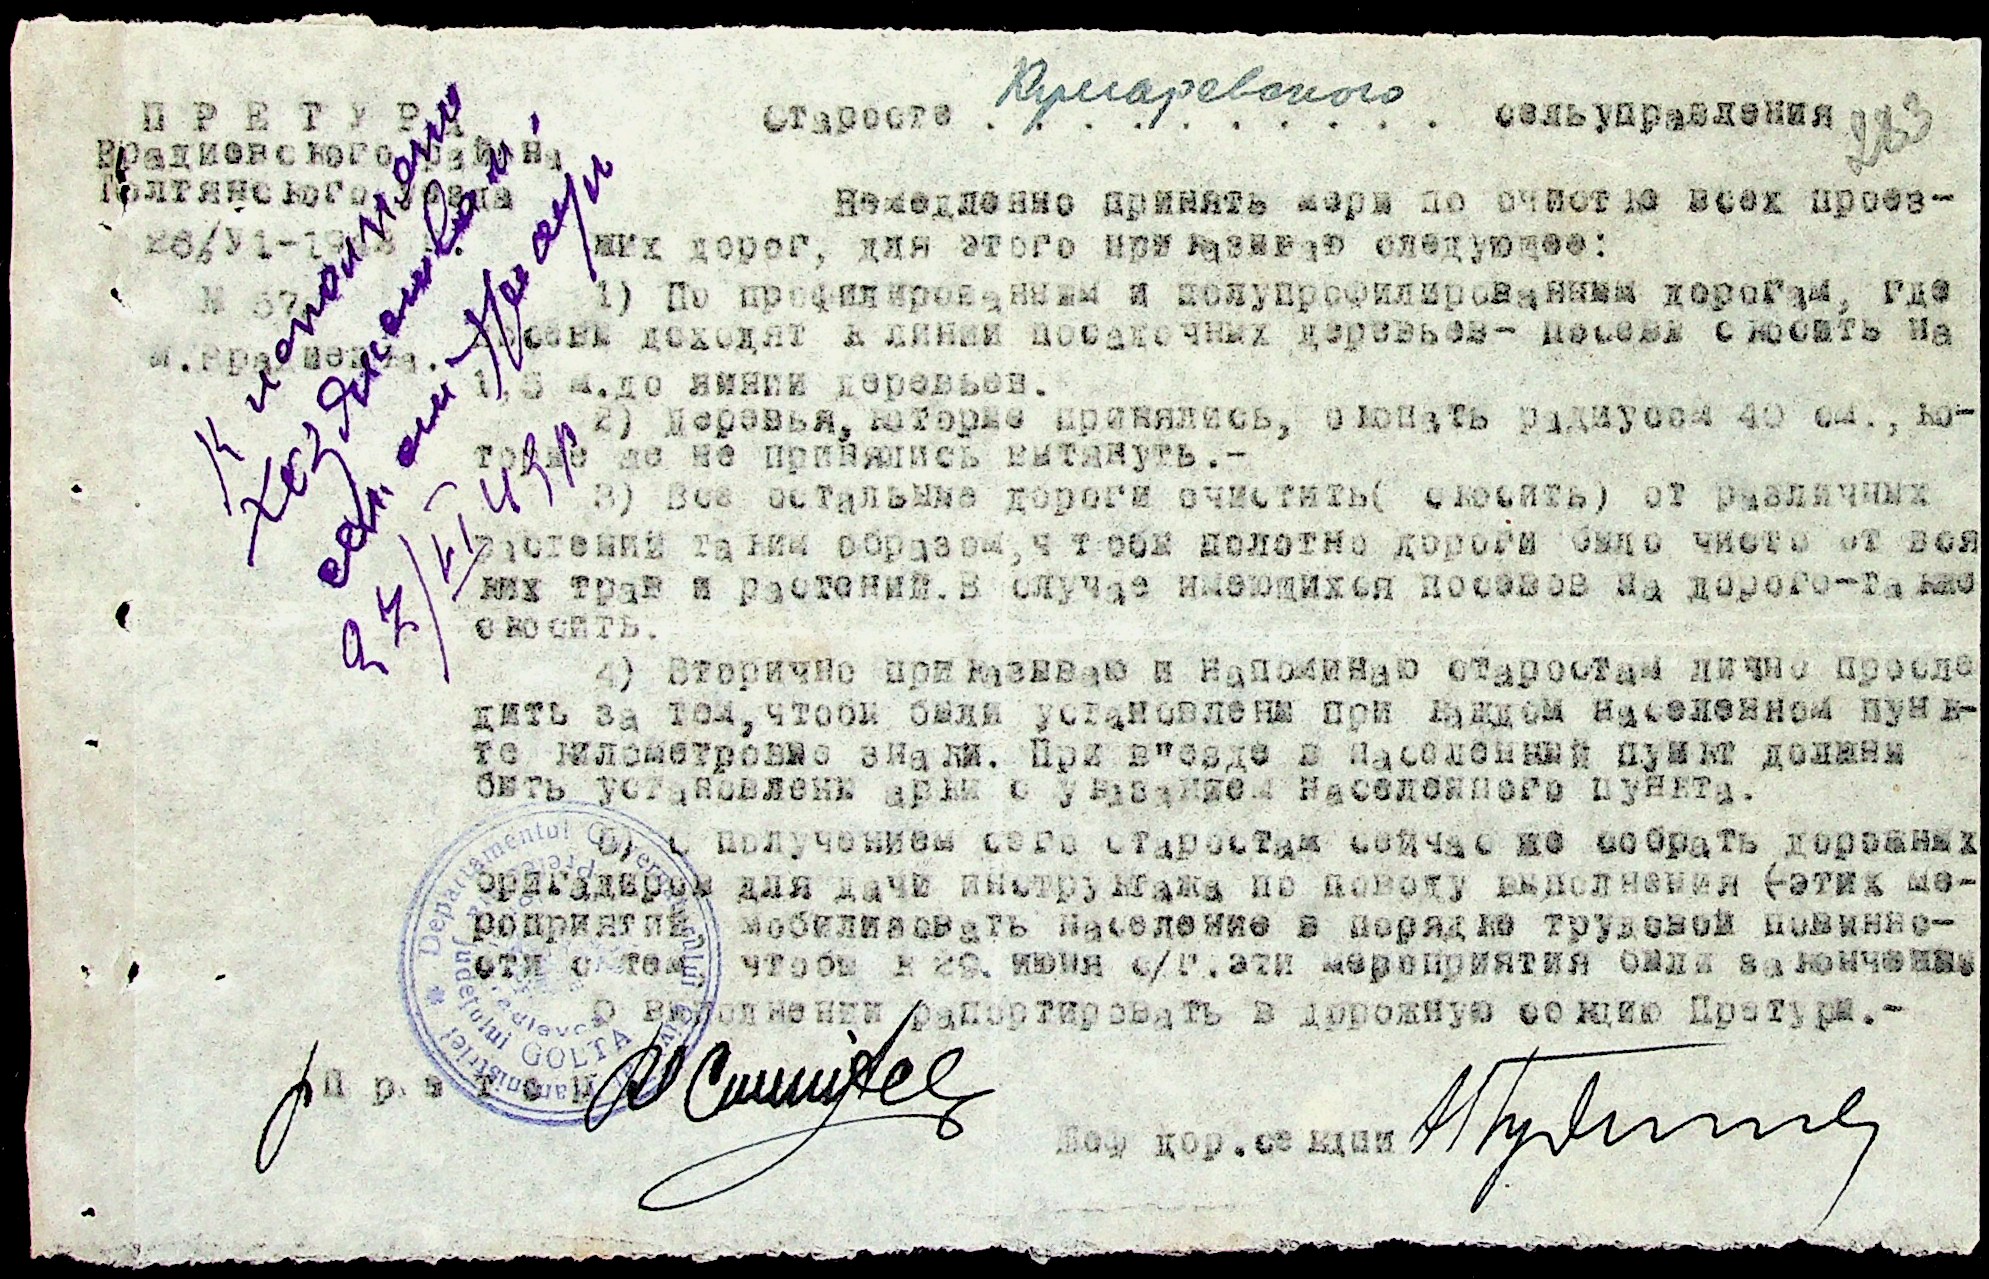 П Р Е Т У Р А
Врадиевского района
Голтянского уезда
26/VI-1943 г.
№ 67
м.Врадиевка.
Старосте Кумаревского сельуправления
283
Немедленно принять меры по очистке всех проез-
жих дорог, для этого приказиваю следующее:
1) По профилированным и полупрофилированным дорогам, где
посевы доходят к линии посадочных деревьев- посевы скосить на
1,5 м.до линии деревьев.
2) Деревья,которые принялись, окопать радиусом 40 см.,ко-
торые же не принялись вытянуть.-
3) Все остальные дороги очистить( скосить) от различных
растений таким образом,чтобы полотно дороги было чисто от вся
ких трав и растений.В случае имеющихся посевов на дороге-также
скосить.
4) Вторично приказываю и напоминаю старостам лично просле
дить за тем,чтобы были установлены при каждом населенном пунк-
те километровые знаки. При в"езде в населенный пункт должны
быть установлены арки с указанием населенного пункта.
5) С получением сего старостам сейчас же собрать дорожных
бригадиров для дачи инструктажа по поводу выполнения этих ме-
роприятий мобилизовать население в порядке трудовой повинно-
сти с тем чтобы к 29. июня с/г.эти мероприятия были закончены
О выполнении рапортировать в дорожную секцию Претуры.-
П р е т о р
Шеф дор.секции
К исполнению
27/VI 43 г
Departamentul Guvernământului Transnistriei
Județului GOLTA